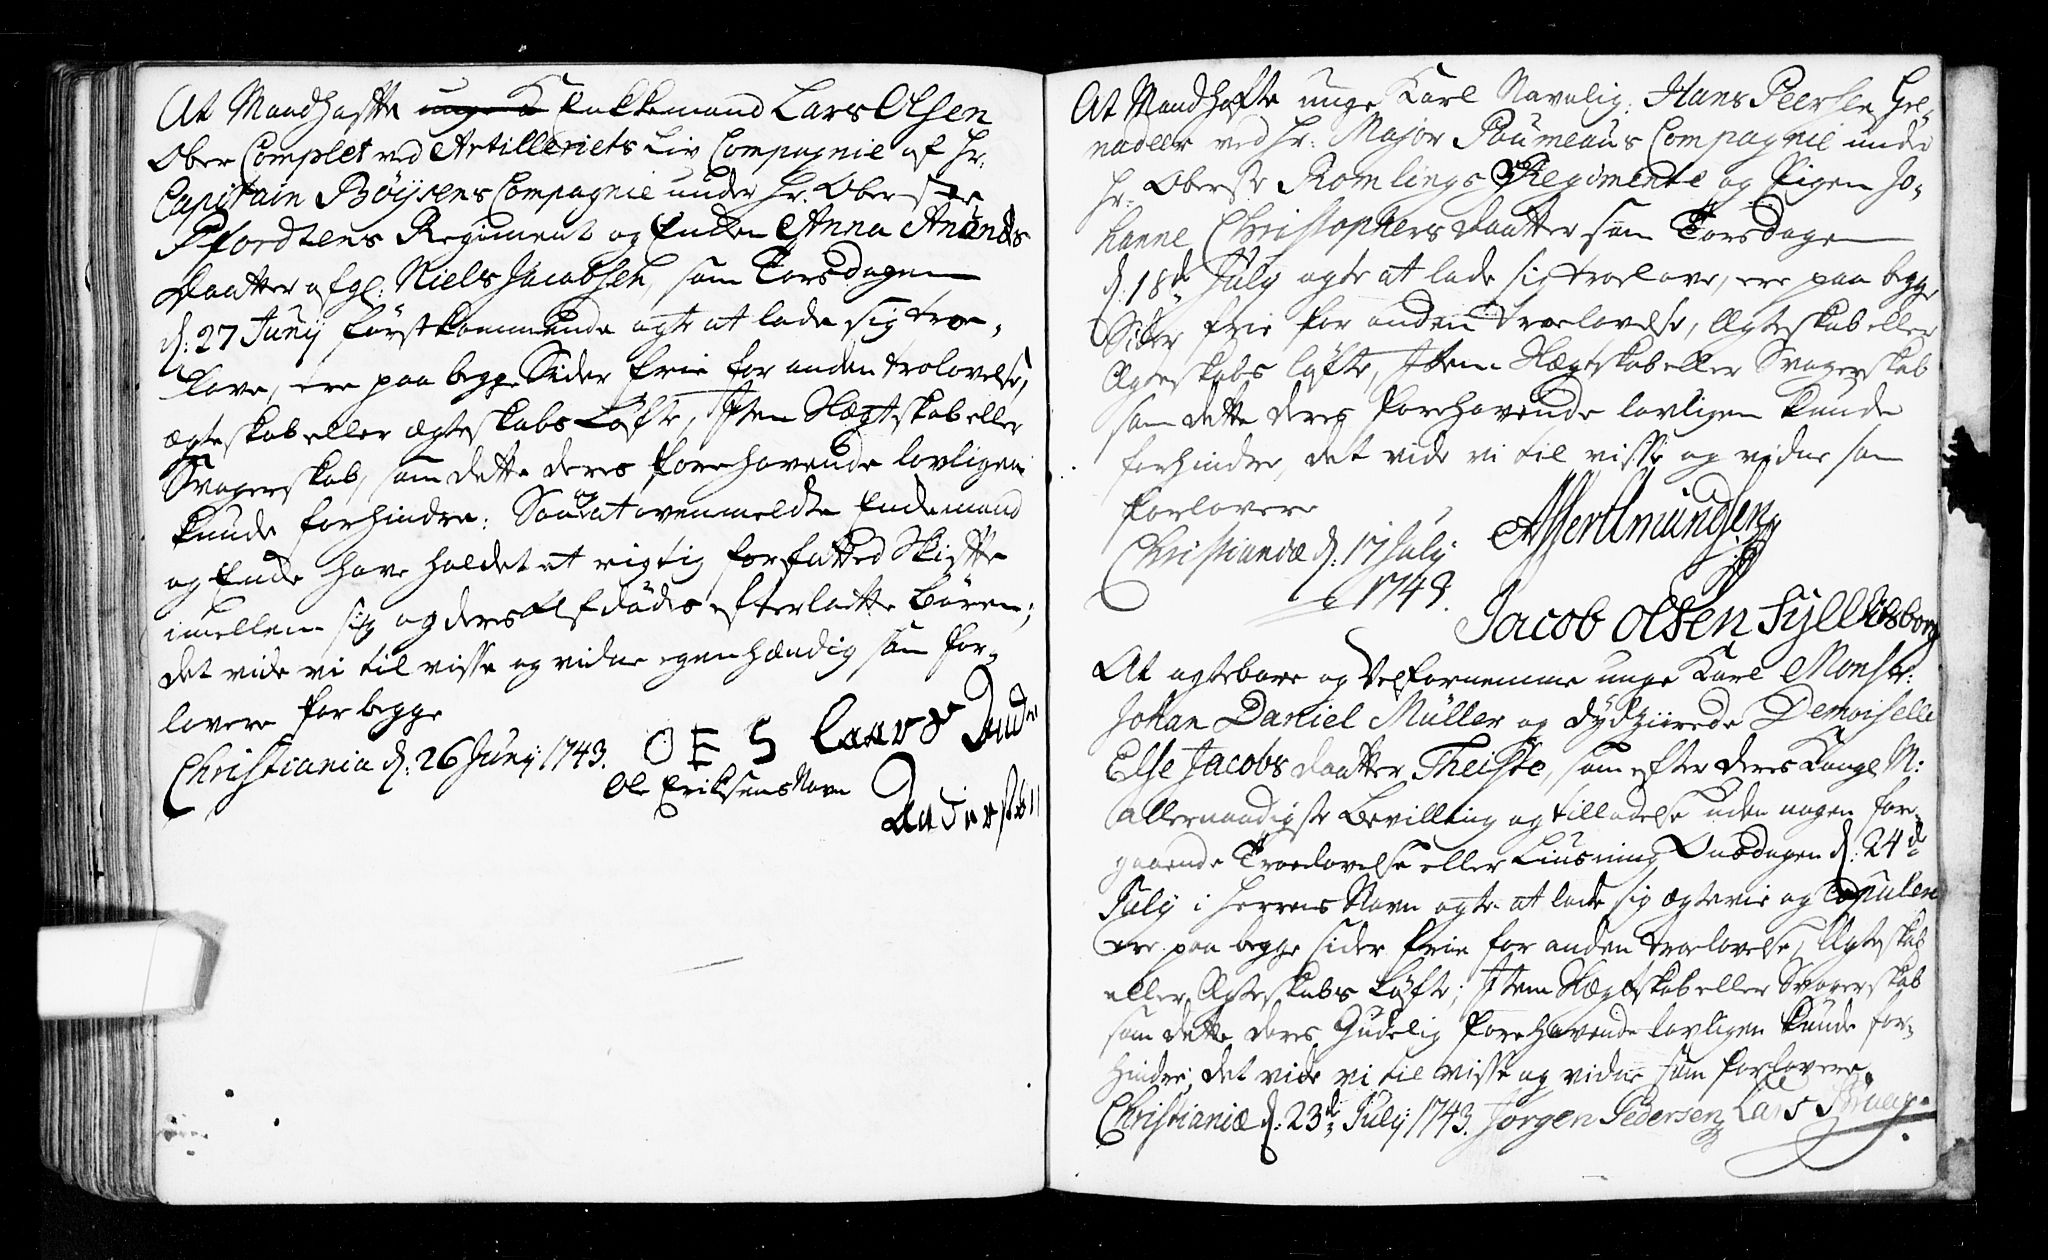 At Mandhaftte unge K Enkkemand Lars Olsen
Ober Complet ved Artilleriets Liv Compagnie af Hr:
Capitain Böysens Compagnie under Hr. Oberste
Pfordtens Regiment og Enken Anna Anunds
Daatter afgl: Niels Jacobsen, som Torsdagen
d: 27 Junij förstkommende agte at lade sig troe,
love, ere paa begge Sider frie for anden trolovelse,
ægteskab eller ægteskabs Löfte, Item Slægtskab eller
Svagerskab, som dette deres forehavende lovligen
kunde forhindre: Saa og at ovenmeldte Enkemand
og Enke have holdet et rigtig forfatted Skiftte
imellem sig og deres Afdödes efterladte Börn;
det vide vi til visse og vidne egenhændig som for,
lovere for begge
Christiania d: 26 Junij 1743. OES Laars
Ole Eriksens Navn
Anderssen
At Mandhafte unge Karl Navnlig: Hans Peersen Gre,
nadeer ved Hr: Major Paumeaus Compagnie under
Hr: Oberste Romlings Regimente og Pigen Jo,
hanne Christophers Daatter som Torsdagen
d: 18de July agte at lade sig troelove, ere paa begge
Sider frie for anden troelovelse, Ægteskab eller
Ægteskabs löfte, Item Slægtskab eller Svagerskab
som dette deres forehavende lovligen kunde
forhindre, det vide vi til visse og vidne som
forlovere
Christianiæ d: 17 July Amundsen
1743.
Jacob Olsen
At agtbare og Velfornemme unge Karl Monsr:
Johan Daniel Müller og dydziirede Demoiselle
Else Jacobs Daatter Theiste, som efter deres Kongl M:
allernaadigste Bevilling og tilladelse uden nogen for,
gaaende Troelovelse eller Liusning Onsdagen d: 24de
July i Herrens Navn agte at lade sig ægtevie og Copulere
ere paa begge sider frie for anden troelovelse, Ægteskab
eller Ægteskabs Löfte; Item Slægtskab eller Svagerskab
som dette deres Gudelig forehavende lovligen kunde for,
hindre, det vide vi til visse og vidne som forlovere.
Christianiæ d: 23de July 1743. Jörgen Pedersen Lars